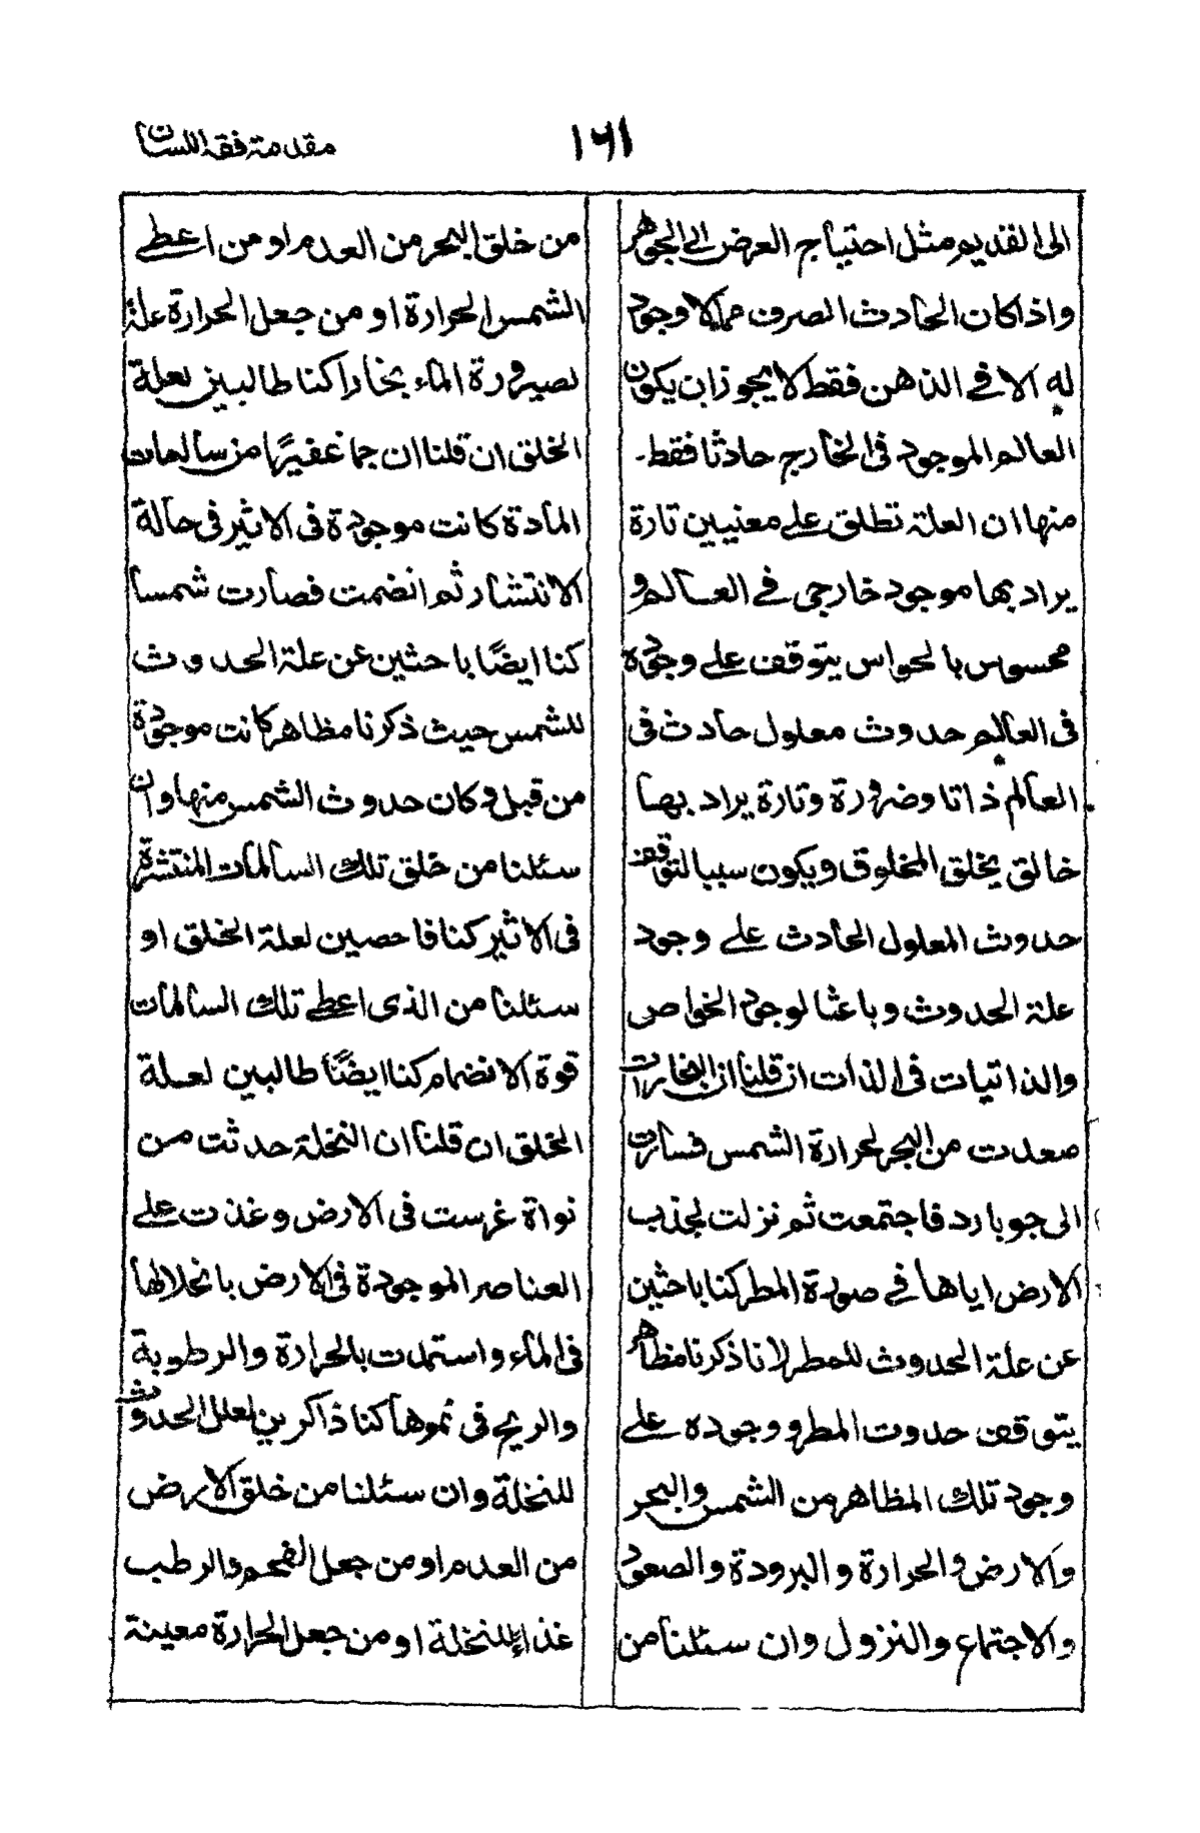 ١٦١
مقدمة فقه اللسان
الى القديم مثل احتياج العرض الى الجوهر
واذا كان الحادث الصرف مما لا وجود
له الا في الذهن فقط لا يجوز ان يكون
العالم الموجود فى الخارج حادثا فقط۔
منها ان العلة تطلق على معنيين تارة
يراد بها موجود خارجى في العالم و
محسوس بالحواس يتوقف على وجوده
فى العالم حدوث معلول حادث فى
العالم ذاتا وضرورة وتارة يراد بها
خالق يخلق المخلوق ويكون سببا لتوقف
حدوث المعلول الحادث على وجود
علة الحدوث وباعثا لوجود الخواص
والذاتيات فى الذات ان قلنا ان البخارات
صعدت من البحر لحرارة الشمس فسارت
الى جو بارد فاجتمعت ثم نزلت لجذب
الارض اياها في صورة المطر كنا باحثين
عن علة الحدوث للمطر لانا ذكرنا مظاهر
يتوقف حدوث المطر و وجوده على
وجود تلك المظاهر من الشمس والبحر
والارض والحرارة والبرودة والصعود
والاجتماع والنزول وان سئلنا من
من خلق البحر من العدم او من اعطى
الشمس الحرارة او من جعل الحرارة علة
لصيرورة الماء بخارا كنا طالبين لعلة
الخلق ان قلنا ان جما غفيرًا من سالمات
المادة كانت موجودة فى الاثير فى حالة
الانتشار ثم انضمت فصارت شمسا
كنا ايضًا باحثين عن علة الحدوث
للشمس حيث ذكرنا مظاهر كانت موجودة
من قبل وكان حدوث الشمس منها وان
سئلنا من خلق تلك السالمات المنتشرة
فى الاثير كنا فاحصين لعلة الخلق او
سئلنا من الذى اعطى تلك السالمات
قوة الانضمام كنا ايضًا طالبين لعلة
الخلق ان قلنا ان النخلة حدثت من
نواة غرست فى الارض وغذت على
العناصر الموجودة فى الارض بانحلالها
فى الماء واستمدت بالحرارة والرطوبة
والريح فى نموها كنا ذاكرين لعلل الحدوث
للنخلة وان سئلنا من خلق الارض
من العدم او من جعل الفحم والرطب
غذاء للنخلة او من جعل الحرارة معينة